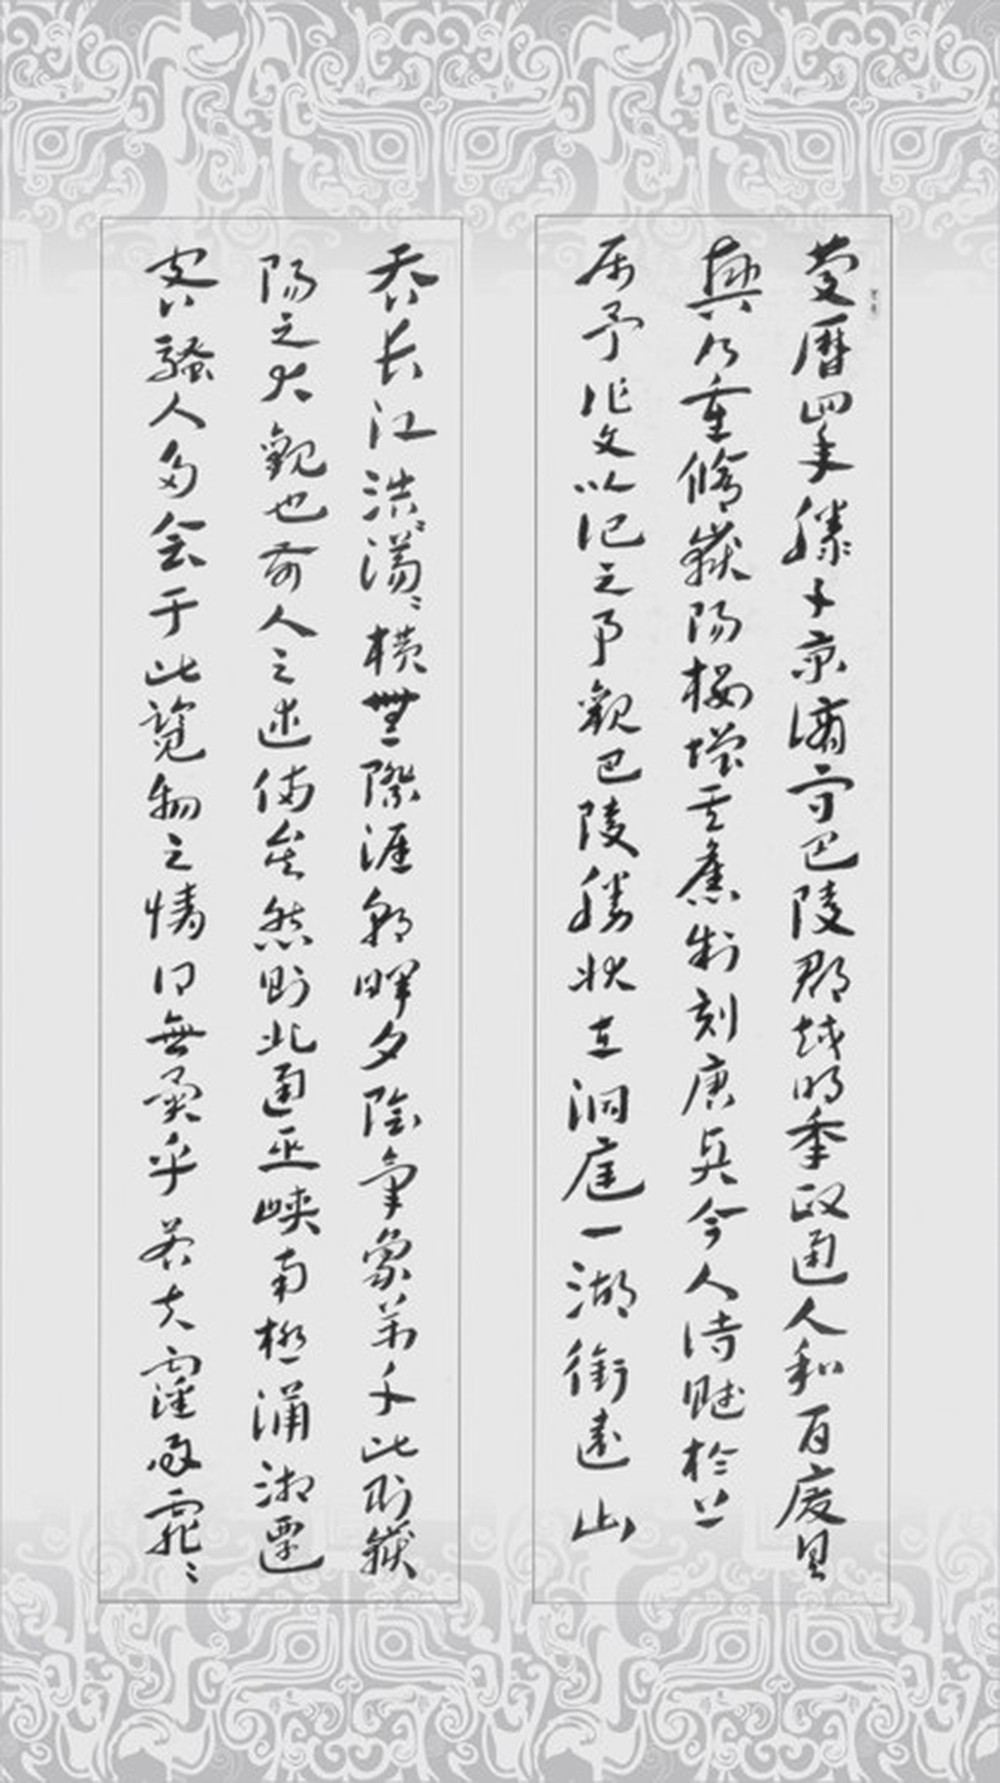 慶曆四年滕子京謫守巴陵郡越明秊政通人和百廢具
興乃重脩嶽陽樓增其舊制刻唐賢今人詩賦於上
屬予作文以記之予觀巴陵勝狀在洞庭一湖銜遠山
吞長江浩〻蕩〻橫無際涯朝暉夕陰氣象萬千此則嶽
陽之大觀也前人之述備矣然則北通巫峽南極瀟湘遷
客騷人多會于此覽物之情得無異乎若夫霪雨霏〻